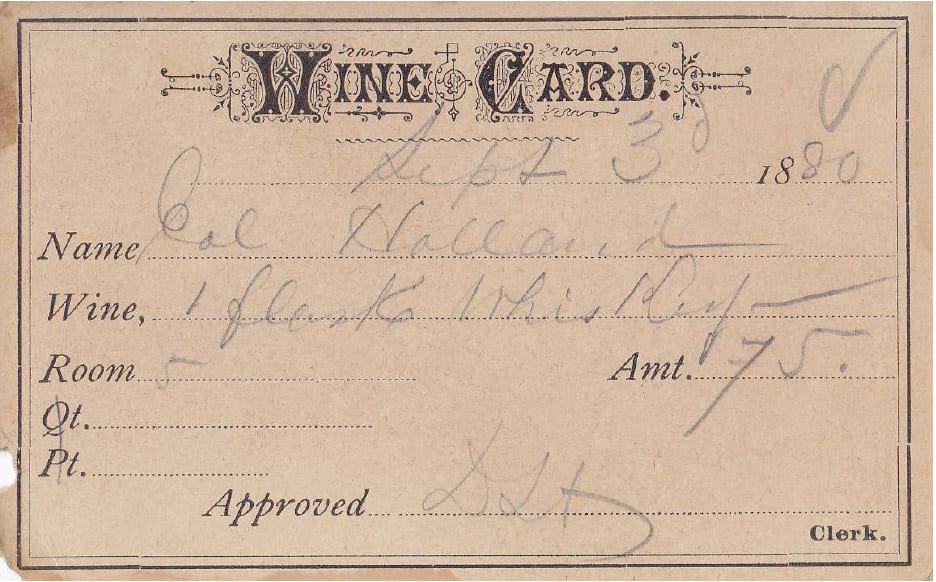 WINE CARD.
Sept 3d 1880
Name Col Holland
Wine, 1 flask Whiskey
Room 5 Amt. 75.
Qt.
Pt.
Approved
Clerk.